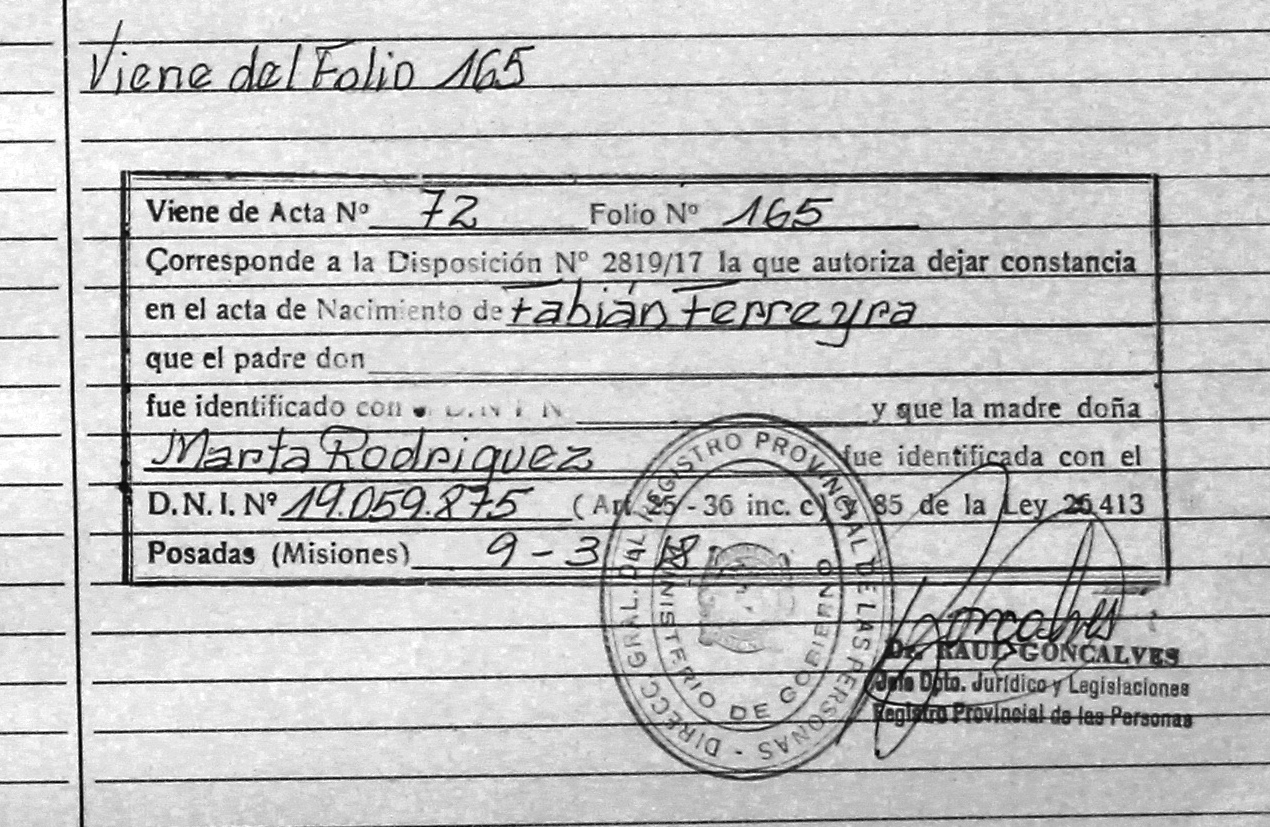 Viene del Folio 165
Viene de Acta Nº 72 Folio Nº 165
Corresponde a la Disposición Nº 2819/17 la que autoriza dejar constancia
en el acta de Nacimiento de Fabián Ferreyra
que el padre don
fue identificado con y que la madre doña
Marta Rodriguez fue identificada con el
D.N.I. Nº 19.059.875 (Art 25 - 36 inc. c) y 85 de la Ley 26.413
Posadas (Misiones) 9 - 3 18
DIRECC GRAL. DAL REGISTRO PROVINCIAL DE LAS PERSONAS -
MINISTERIO DE GOBIERNO
Goncalves
Dr. RAUL GONCALVES
Jefe Dpto. Jurídico y Legislaciones
Registro Provincial de las Personas